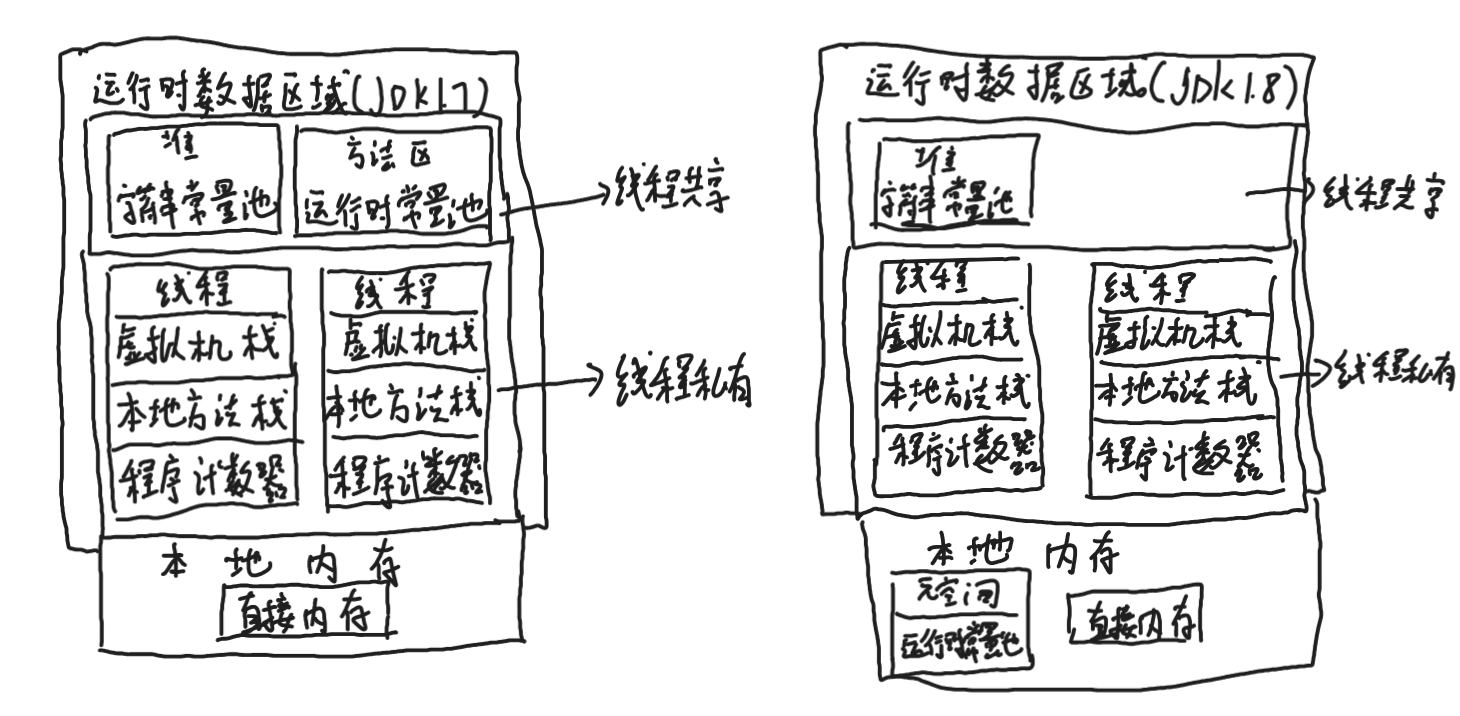 运行时数据区域(JDK1.7)
堆
字符串常量池
方法区
运行时常量池
线程共享
线程
虚拟机栈
本地方法栈
程序计数器
线程
虚拟机栈
本地方法栈
程序计数器
线程私有
本地内存
直接内存
运行时数据区域(JDK1.8)
堆
字符串常量池
线程共享
线程
虚拟机栈
本地方法栈
程序计数器
线程
虚拟机栈
本地方法栈
程序计数器
线程私有
本地内存
元空间
运行时常量池
直接内存